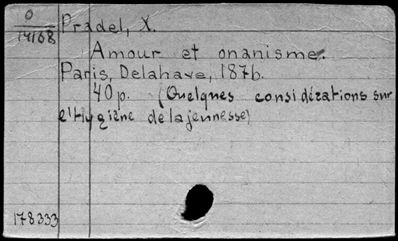 0
14168
Pradel, X.
Amour et onanisme.
Paris, Delahave, 1876.
40 p. (Quelques considérations sur
l'Hygiène de la jeunesse)
178333